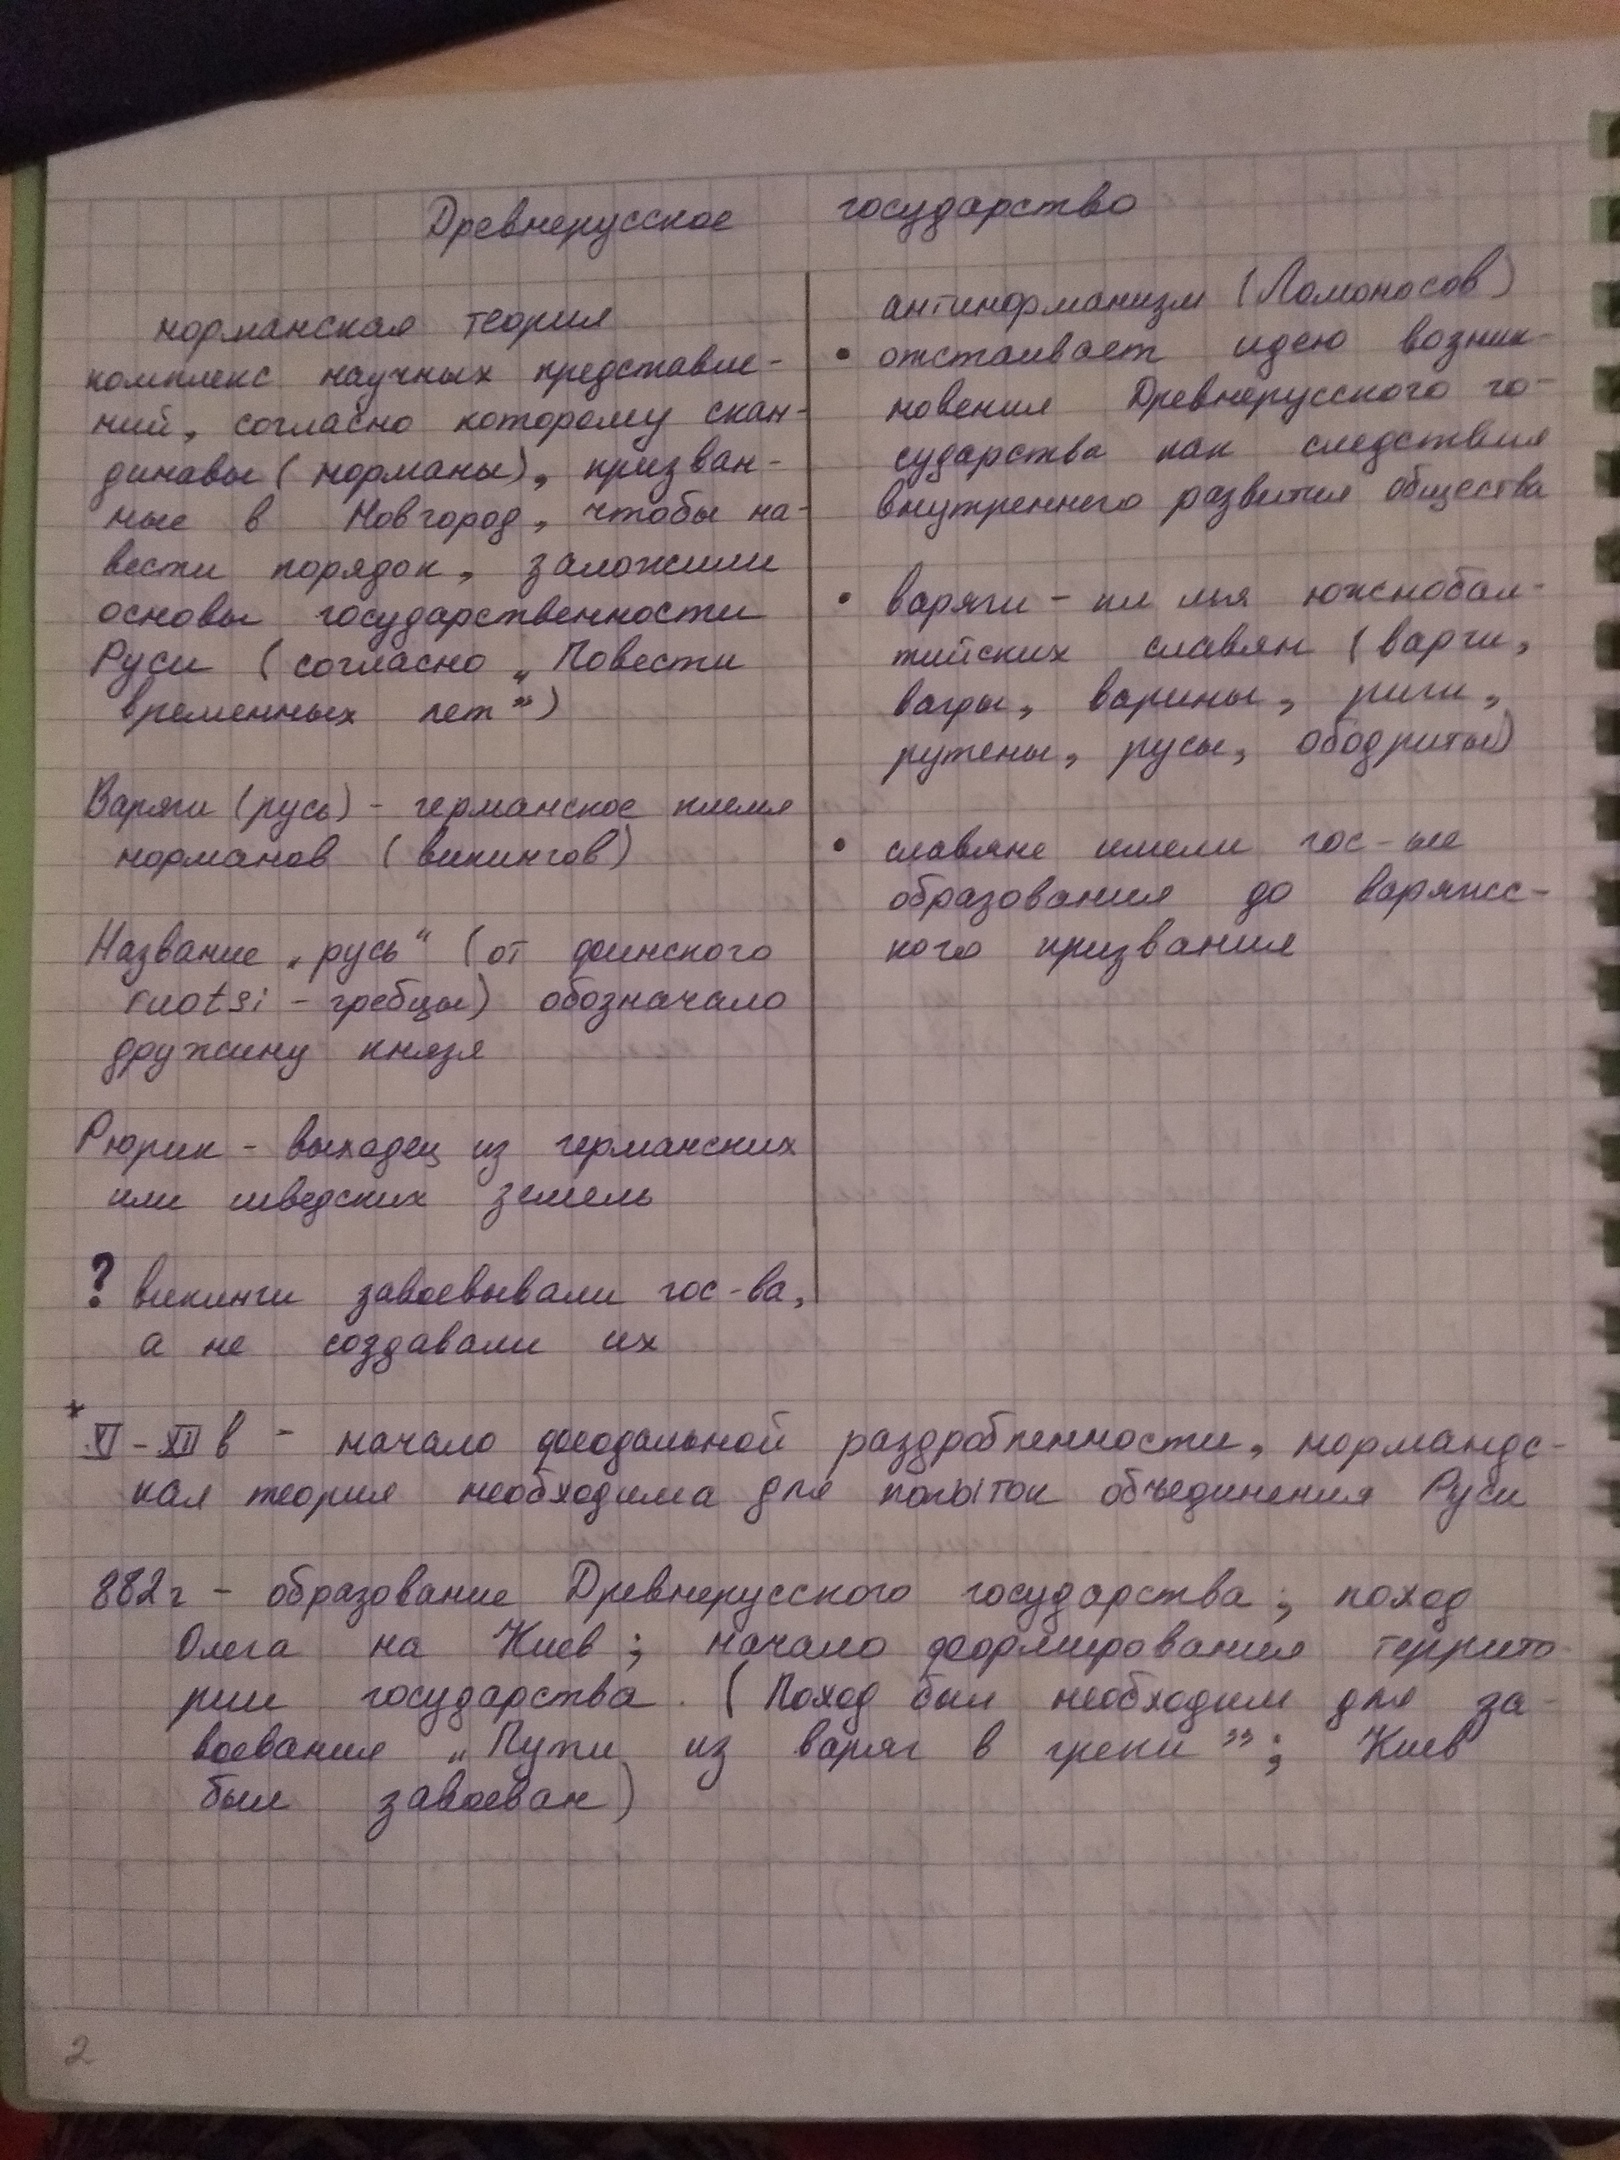 Древнерусское государство
норманская теория
комплекс научных представле-
ний, согласно которому скан-
динавы (норманы), призван-
ные в Новгород, чтобы на-
вести порядок, заложили
основы государственности
Руси (согласно „Повести
временных лет”)
Варяги (русь) - германское племя
норманов (викингов)
Название „русь“ (от финского
ruotsi - гребцы) обозначало
дружину князя
Рюрик - выходец из германских
или шведских земель
? викинги завоевывали гос-ва,
а не создавали их
антинорманизм (Ломоносов)
• отстаивает идею возник-
новения Древнерусского го-
сударства как следствия
внутреннего развития общества
• варяги - пл мя южнобал-
тийских славян (варги,
вагры, варины, риги,
рутены, русы, ободриты)
• славяне имели гос-ые
образования до варяжс-
кого призвания
* XI - XII в - начало феодальной раздробленности, нормандс-
кая теория необходима для попыток объединения Руси
882г - образование Древнерусского государства; поход
Олега на Киев; начало формирования террито-
рии государства. (Поход был необходим для за-
воевания „Пути из варяг в греки”; Киев
был завоеван)
2